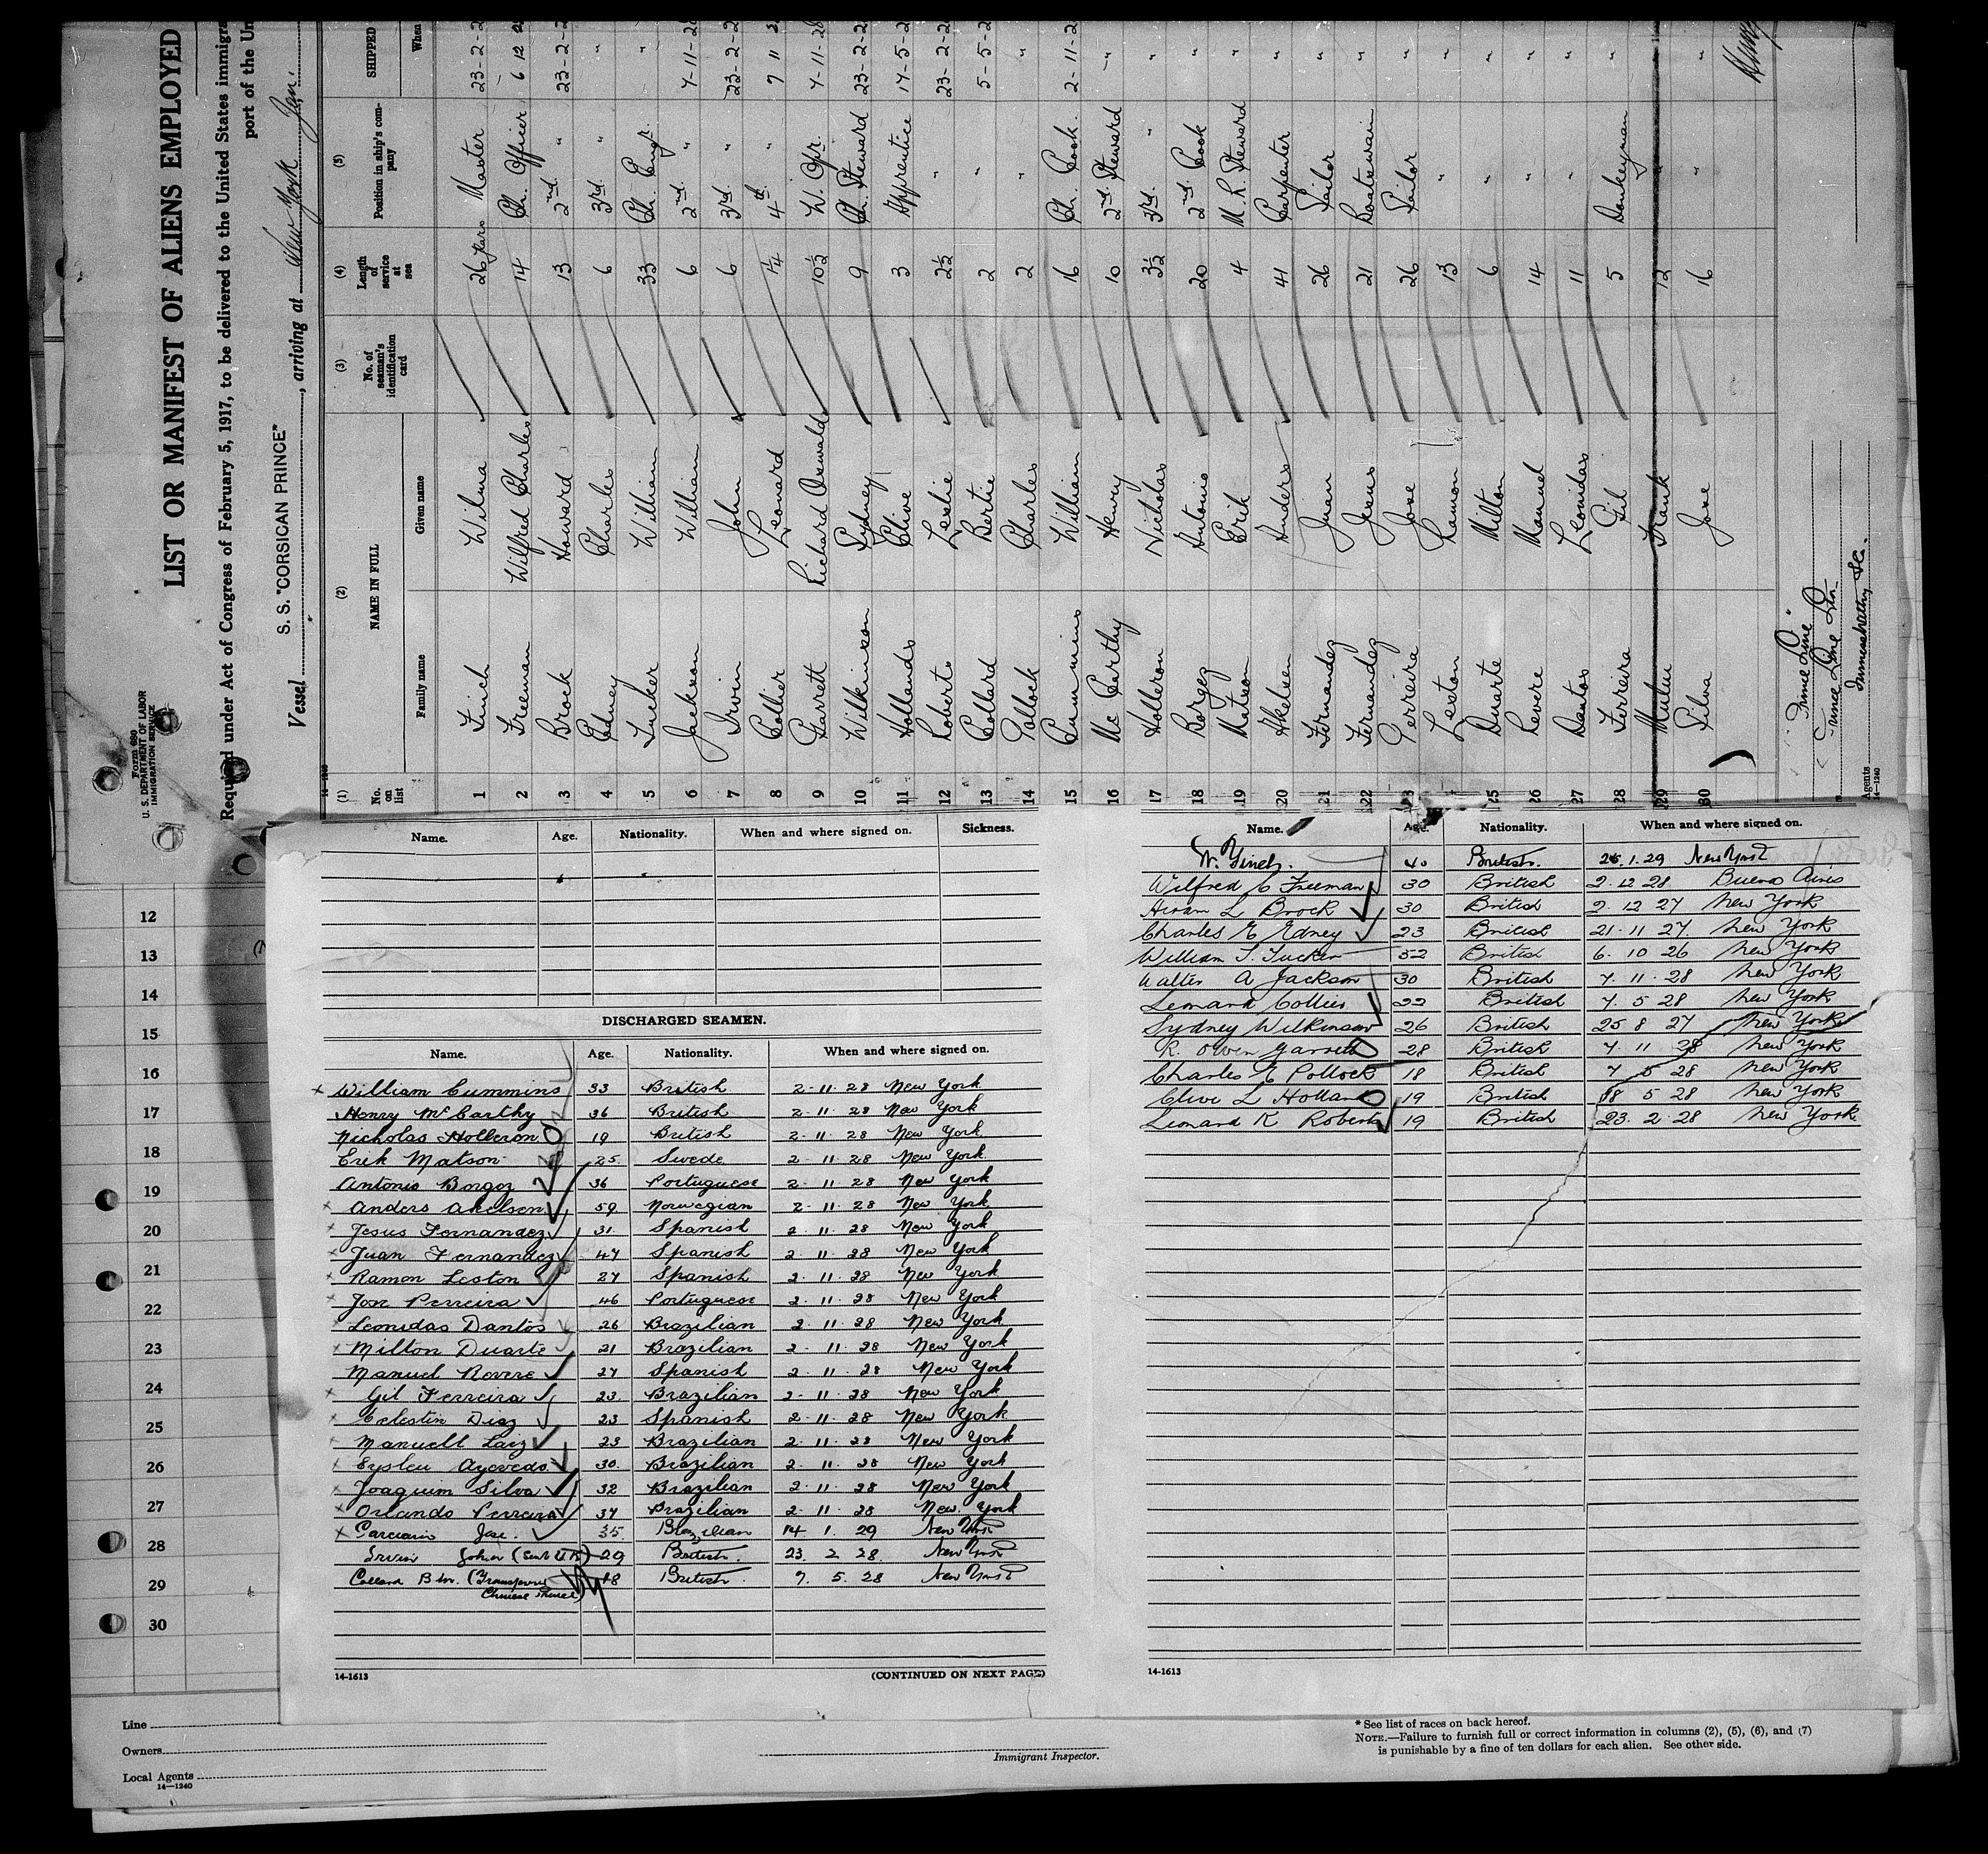 Form 680
U. S. DEPARTMENT OF LABOR
IMMIGRATION SERVICE
LIST OR MANIFEST OF ALIENS EMPLOYED
Required under Act of Congress of February 5, 1917, to be delivered to the United States immigra
port of the Un
S. S. "CORSICAN PRINCE"
Vessel , arriving at New York Jan.
(1) (2) (3) (4) (5)
No. on list NAME IN FULL No. of seaman's identification card Length of service at sea Position in ship's company SHIPPED
Family name Given name When
1 Finch Wilma 26 years Master 23-2-2
2 Freeman Wilfred Charles 14 Ch. Officer 6 12 2
3 Brock Howard 13 2nd " 23-2-2
4 Edney Charles 6 3rd " "
5 Tucker William 33 Ch. Engr. "
6 Jackson William 6 2nd " 7-11-28
7 Irvin John 6 3rd " 23-2-2
8 Collier Leonard 1¼ 4th "
9 Garrett Richard Oswald 10½ W. Opr. 7-11-28
10 Wilkinson Sydney 9 Ch. Steward 23-2-2
11 Hollands Clive 3 Apprentice 17-5-2
12 Roberts Leslie 2½ " 23-2-2
13 Collard Bertie 2 " 5-5-2
14 Pollock Charles 2 " "
15 Cummins William 16 Ch. Cook 2-11-2
16 Mc Carthy Henry 10 2nd Steward "
17 Holleron Nicholas 3½ 3rd " "
18 Borgez Antonio 20 2nd Cook "
19 Matson Erik 4 M. R. Steward "
20 Akelsen Anders 41 Carpenter "
21 Fernandez Juan 26 Sailor "
22 Fernandez Jesus 21 Boatswain "
23 Perreira Jose 26 Sailor "
Leston Ramon 13 " "
25 Duarte Milton 6 " "
26 Rovere Manuel 14 " "
27 Dantos Leonidas 11 " "
28 Ferreira Gil 5 Donkeyman "
29 Frank 12 " "
30 Silva Jose 16 " "
"Prince Line"
Prince Line Ltd.
Agents
14-1240
Name. Age. Nationality. When and where signed on. Sickness.
DISCHARGED SEAMEN.
Name. Age. Nationality. When and where signed on.
x William Cummins 33 British 2-11-28 New York
Henry Mc Carthy 36 British 2-11-28 New York
Nicholas Holleron 19 British 2-11-28 New York
Erik Matson 25 Swede 2 11-28 New York
Antonio Borgoz 36 Portuguese 2-11-28 New York
x Anders Akelsen 59 Norwegian 2-11-28 New York
Jesus Fernandez 31 Spanish 2-11-28 New York
Juan Fernandez 47 Spanish 2-11-28 New York
Ramon Leston 27 Spanish 2-11-28 New York
Jose Perreira 46 Portuguese 2-11-28 New York
Leonidas Dantos 26 Brazilian 2-11-28 New York
x Milton Duarte 21 Brazilian 2-11-28 New York
Manuel Rovere 27 Spanish 2-11-28 New York
x Gil Ferreira 23 Brazilian 2-11-28 New York
x Celestin Diaz 23 Spanish 2-11-28 New York
Manuell Laiz 23 Brazilian 2-11-28 New York
Azevedo 30 Brazilian 2-11-28 New York
x Joaquim Silva 32 Brazilian 2-11-28 New York
x Orlando Perreira 37 Brazilian 2-11-28 New York
x Jose. 35 Brazilian 14 1. 29 New York
Irvin John 29 British. 23. 2 28. New York
Collard 18 British. 7. 5. 28 New York
14-1613
(CONTINUED ON NEXT PAGE)
Name. Age. Nationality. When and where signed on.
W. Finch. 40 British. 1.29 New York
Wilfred C Freeman 30 British 2 12 28 Buenos Aires
Hiram L Brock 30 British 2 12 27 New York
Charles E Edney 23 British 21-11 27 New York
William T. Tucker 52 British 6. 10 26 New York
Walter A Jackson 30 British 7. 11. 28 New York
Leonard Collier 22 British 7. 5 28 New York
Sydney Wilkinson 26 British 25 8 27 New York
R. Owen Garrett 28 British 7. 11 28 New York
Charles E Pollock 18 British 7 5 28 New York
Clive L Holland 19 British 18 5 28 New York
Leonard K Roberts 19 British 23. 2. 28 New York
14-1613
12
13
14
15
16
17
18
19
20
21
22
23
24
25
26
27
28
29
30
Line
Owners
Local Agents
14—1240
Immigrant Inspector.
* See list of races on back hereof.
NOTE.—Failure to furnish full or correct information in columns (2), (5), (6), and (7)
is punishable by a fine of ten dollars for each alien. See other side.